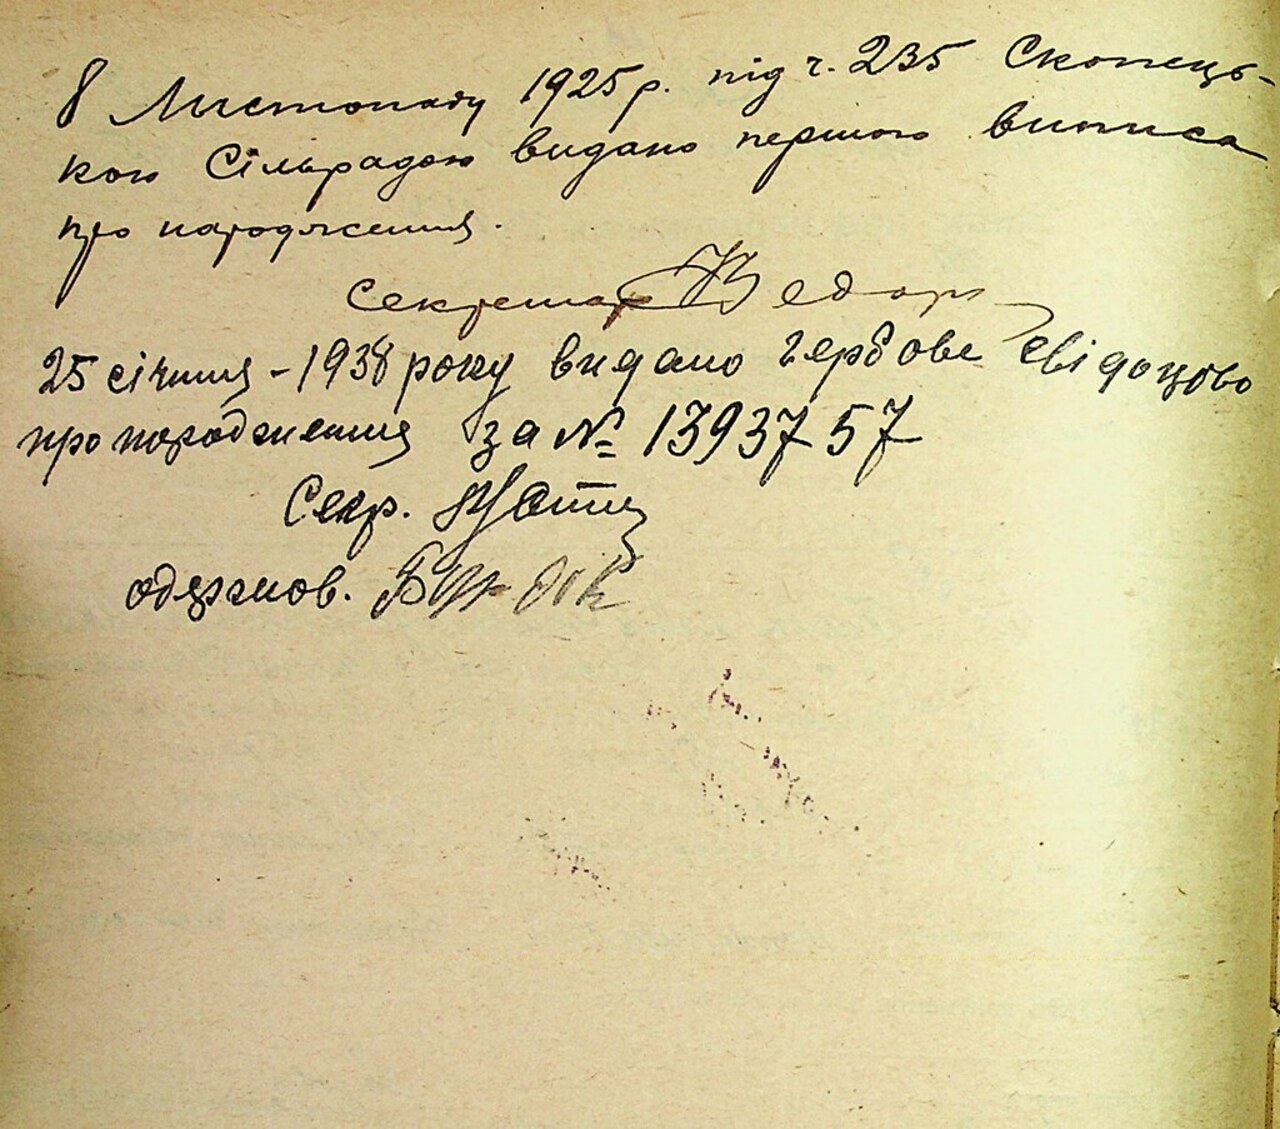 8 Листопаду 1925 р. під ч. 235 Скопець-
кою Сільрадою видано першого виписа
про народження.
Секретар
25 січния - 1938 року видано гербове свідоцтво
про народження за № 1393757
Секр.
одержав.